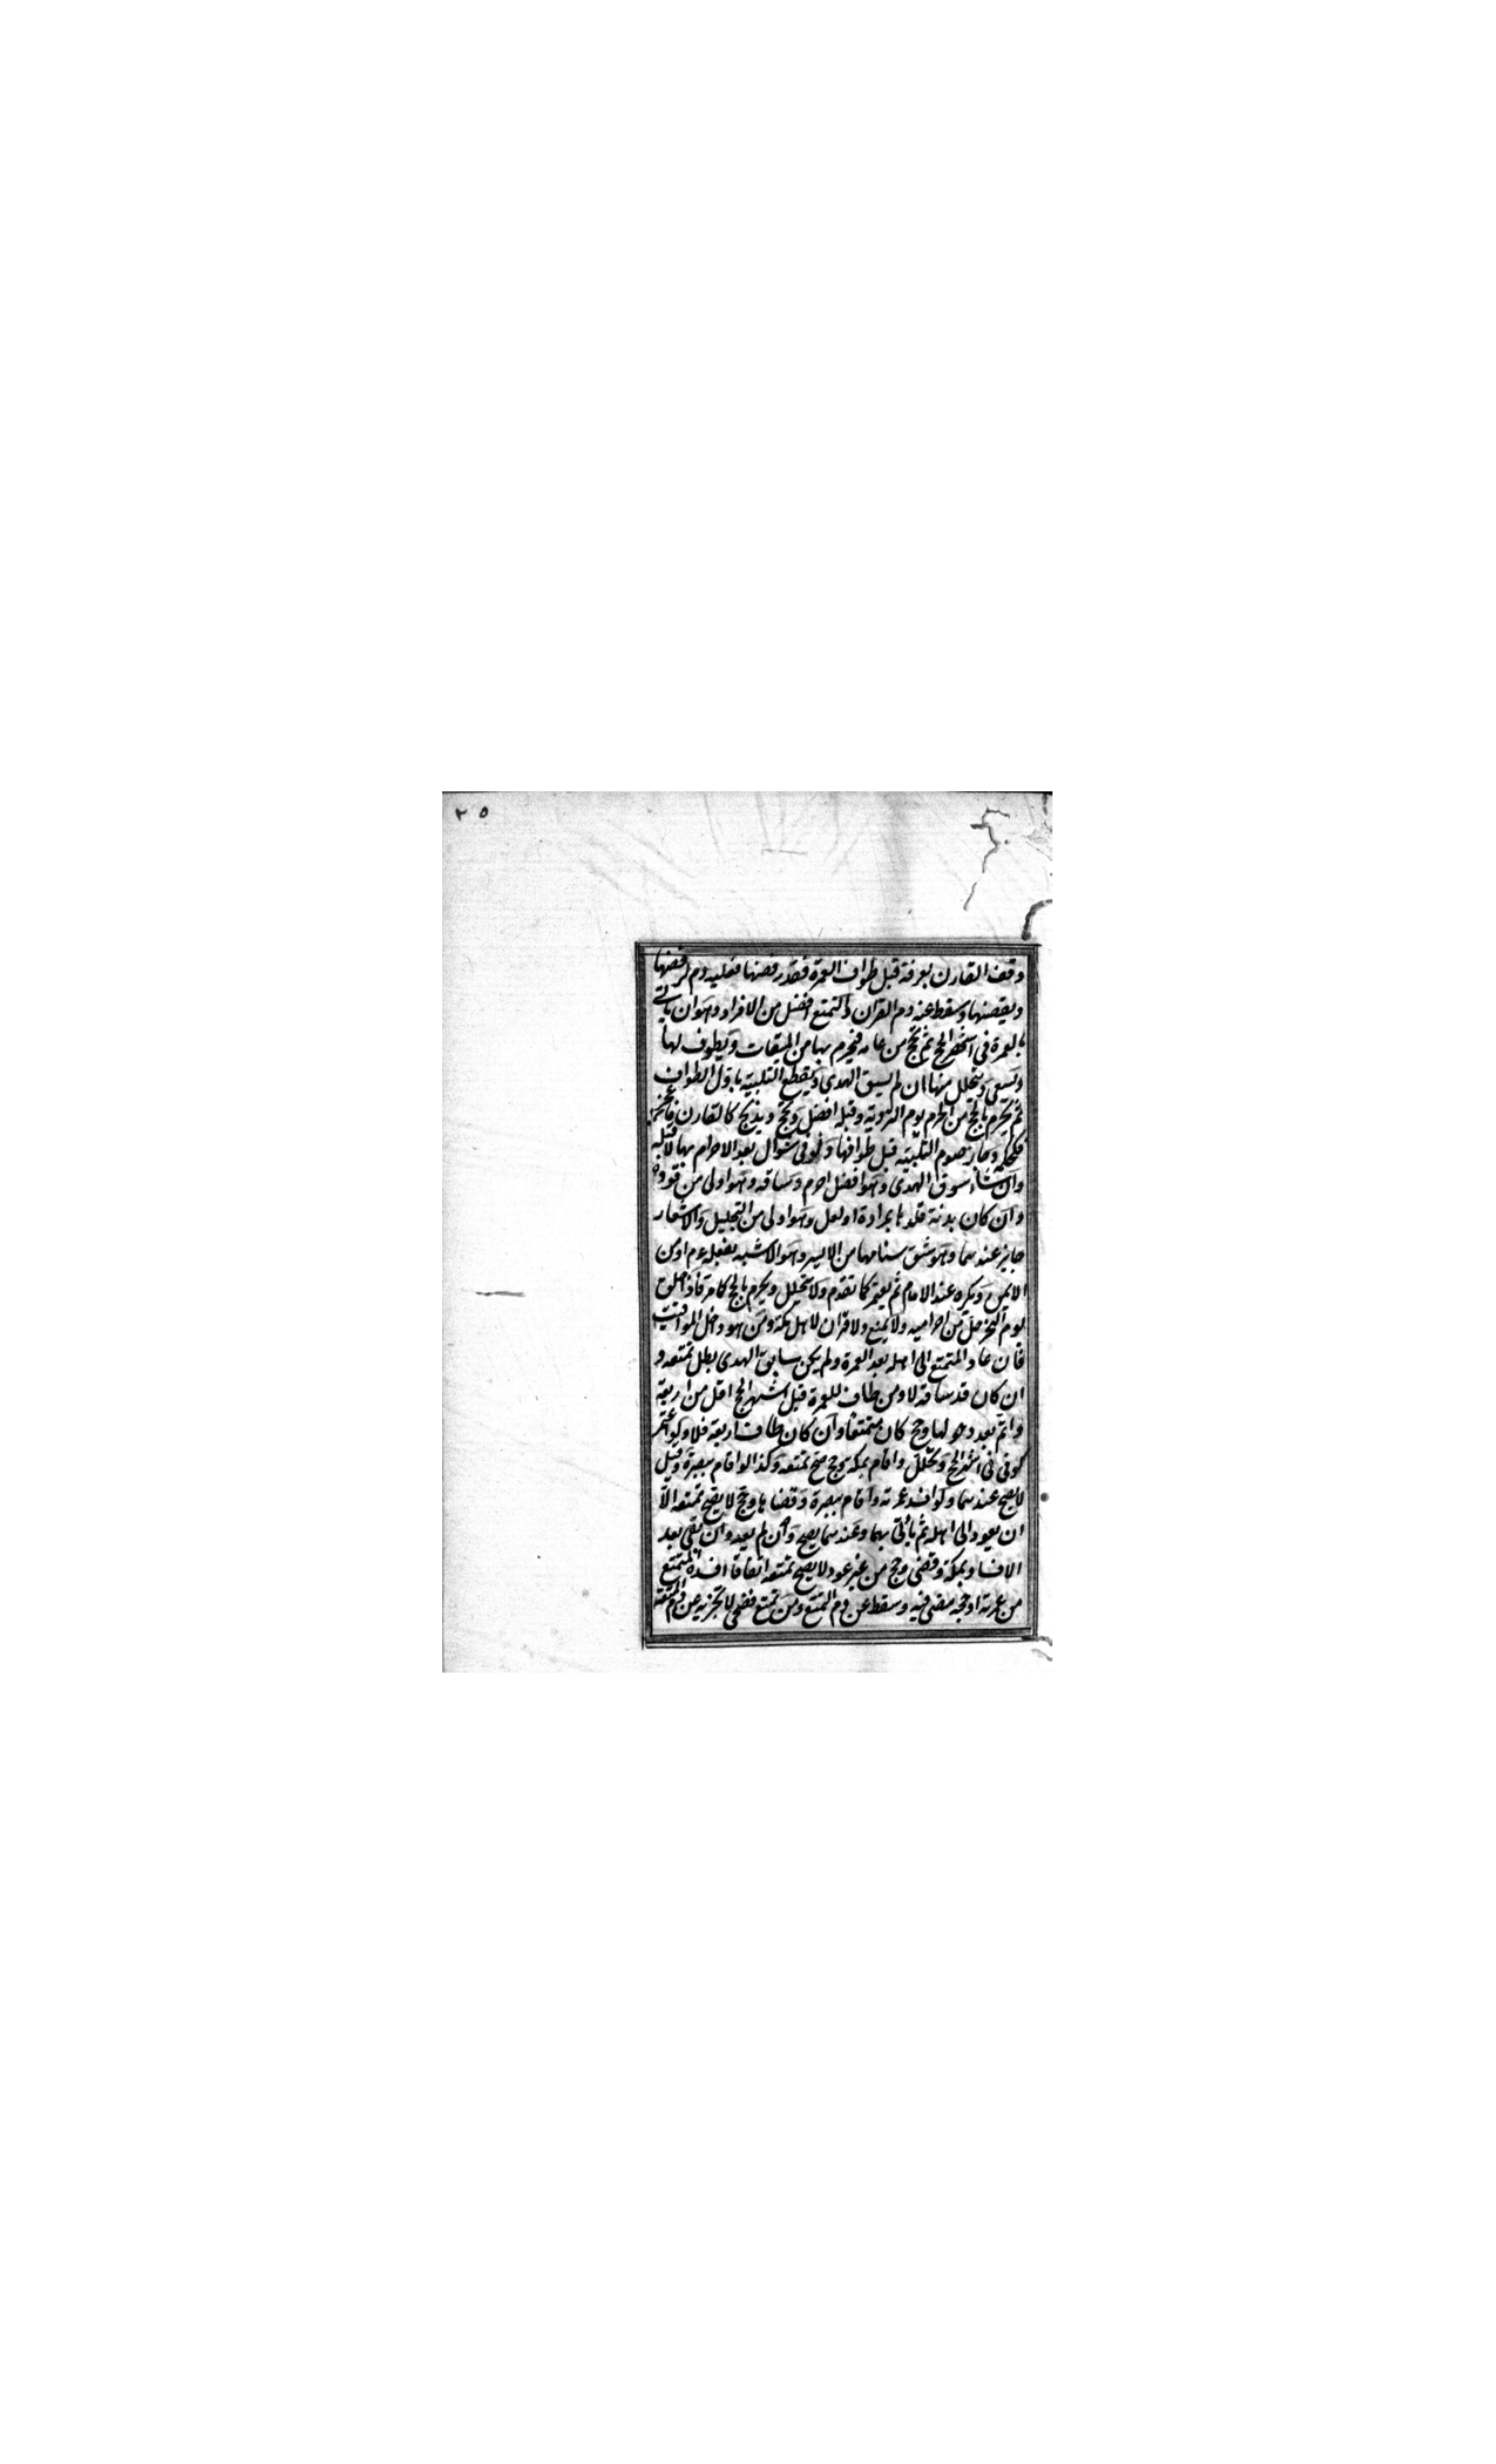 ٣٥
وقف القارن بعرفة قبل طواف العمرة فقد رفضها فعليه دم لرفضها
ويقضيها وسقط عنه دم القران والتمتع افضل من الافراد وهو ان ياتي
بالعمرة في اشهر الحج ثم يحج من عامه فيحرم بها من الميقات ويطوف لها
ويسعى ويتحلل منها ان لم يسق الهدى ويقطع التلبية باول الطواف
ثم يحرم بالحج من الحرم يوم التروية وقبله افضل ويحج ويذبح كالقارن فان عجز
فكحكمه وجاز صوم الثلثة قبل طوافها ولو في شوال بعد الاحرام بها لا قبله
وان شاء سوق الهدى وهو افضل احرم وساقه وهو اولى من قوده
وان كان بدنة قلدها بمزادة او نعل وهو اولى من التجليل والاشعار
جايز عندهما وهو شق سنامها من الايسر وهو الاشبه بفعله عم او من
الايمن ويكره عند الامام ثم يعتمر كما تقدم ولا يتحلل ويحرم بالحج كما مر فاذا حلق
يوم النحر حل من احراميه ولا تمتع ولا قران لاهل مكة ومن هو داخل المواقيت
فان عاد المتمتع الى اهله بعد العمرة ولم يكن سايق الهدى بطل تمتعه و
ان كان قد ساقه لا ومن طاف للعمرة قبل اشهر الحج اقل من اربعة
واتم بعد دخولها وحج كان متمتعا وان كان طاف اربعة فلا ولو اعتمر
كوفي في اشهر الحج وتحلل واقام بمكة وحج صح تمتعه وكذا لو اقام ببصرة وقيل
لا يصح عندهما ولو افسد عمرته واقام ببصرة وقضاها وحج لا يصح تمتعه الا
ان يعود الى اهله ثم ياتي بهما وعندهما يصح وان لم يعد وان بقى بعد
الافساد بمكة وقضى وحج من غير عود لا يصح تمتعه اتفاقا افسده المتمتع
من عمرته او حجه مضى فيه وسقط عن دم التمتع ومن تمتع فضحى لا تجزيه عن دم المتعة